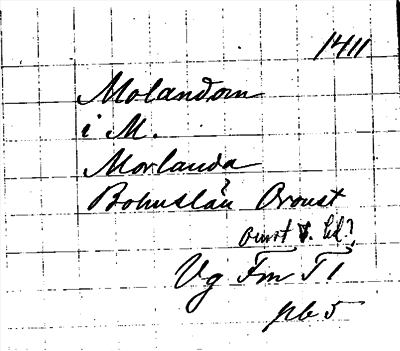 1411
Molandom
i M.
Morlanda
Bohuslän Oroust
Orust
Vg Fm T 1
pb 5